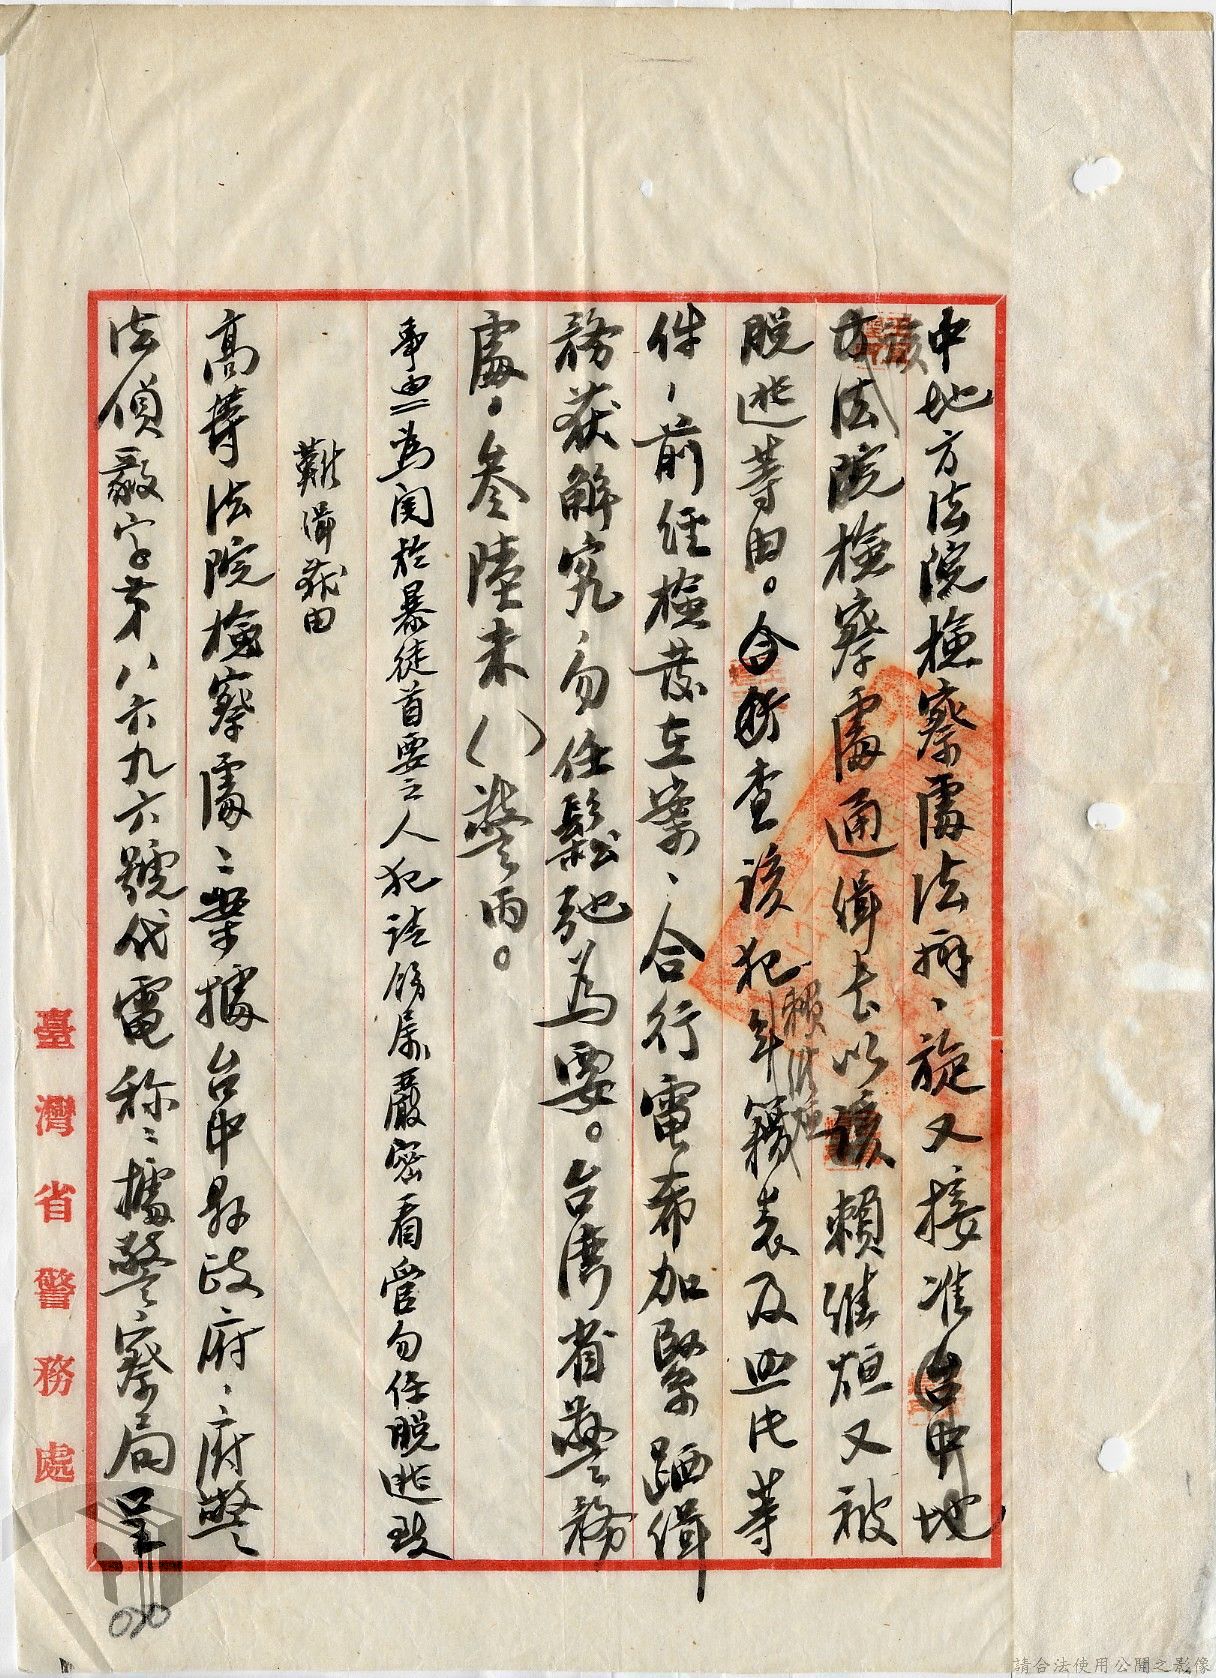 中地方法院檢察處法辦、旋又接准台中地
該
方法院檢察處通緝去以該賴繼烜又被
脫逃等由。合行查該犯年籍表及照片等
賴繼烜
件、前經檢發在案、合行電希加緊跴緝
務获解究、勿任鬆弛為要。台湾省警務
處。叁陸未()警丙。
事由=為関於暴徒首要之人犯請飭屬嚴密看管勿任脫逃致
難緝获由
高等法院檢察處、案據台中縣政府、府警
法偵嚴字第八六九六號代電称、據警察局呈
臺灣省警務處
020
請合法使用公開之影像